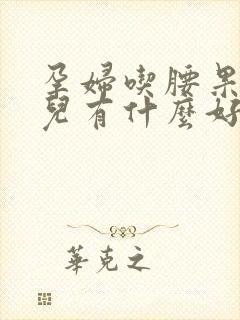 孕婦喫腰果
兒有什麼好
華克之